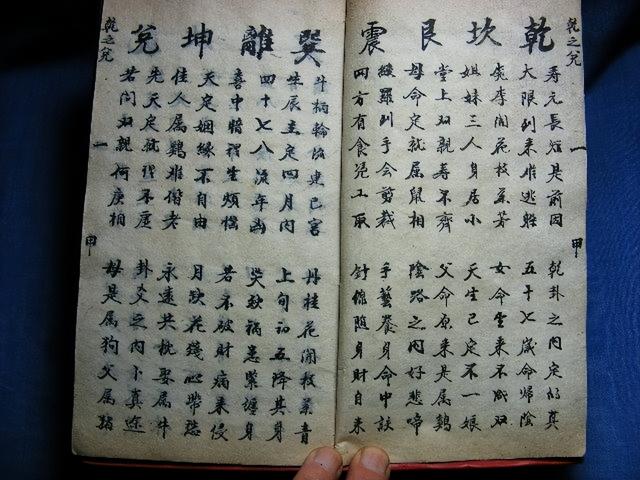 乾之兌 一 甲
乾 坎 艮 震
壽元長短是前因 乾卦之內定的真
大限到来难逃躲 五十七歲命歸陰
李開花枝葉芳 女命生来不成双
姐妹三人身居小 天生已定不一娘
堂上双親壽不齊 父命原来是属鷄
母命定就属鼠相 陰路之內好悲啼
綾羅到手會剪裁 手藝養身命中該
四方有食凭工取 針線随身財自来
巽 離 坤 兌
斗柄輪流建巳宮 丹桂花開枝葉青
生辰主定四月內 上旬初五降其身
四十七八流年凶 禍患緊纏身
喜中暗裡生煩惱 若不破財病来侵
天定姻緣不自由 月缺花殘心帶愁
佳人属鷄难偕老 永遠共枕娶属牛
先天定就理不虛 卦爻之內卜真迹
若問双親何庚相 母是属狗父属猪
乾之兌 一 甲